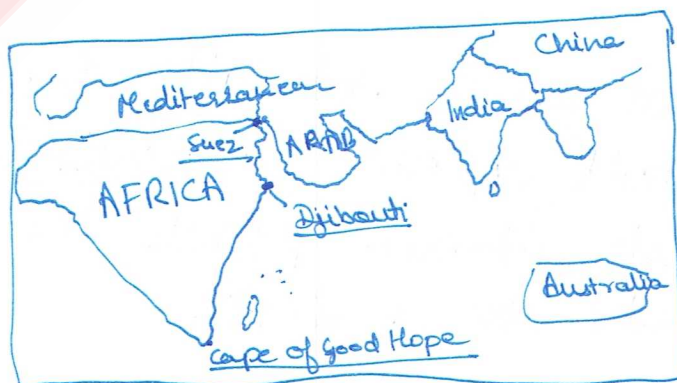 China
Mediterranean
India
Suez
ARAB
AFRICA
Djibouti
Australia
Cape of Good Hope